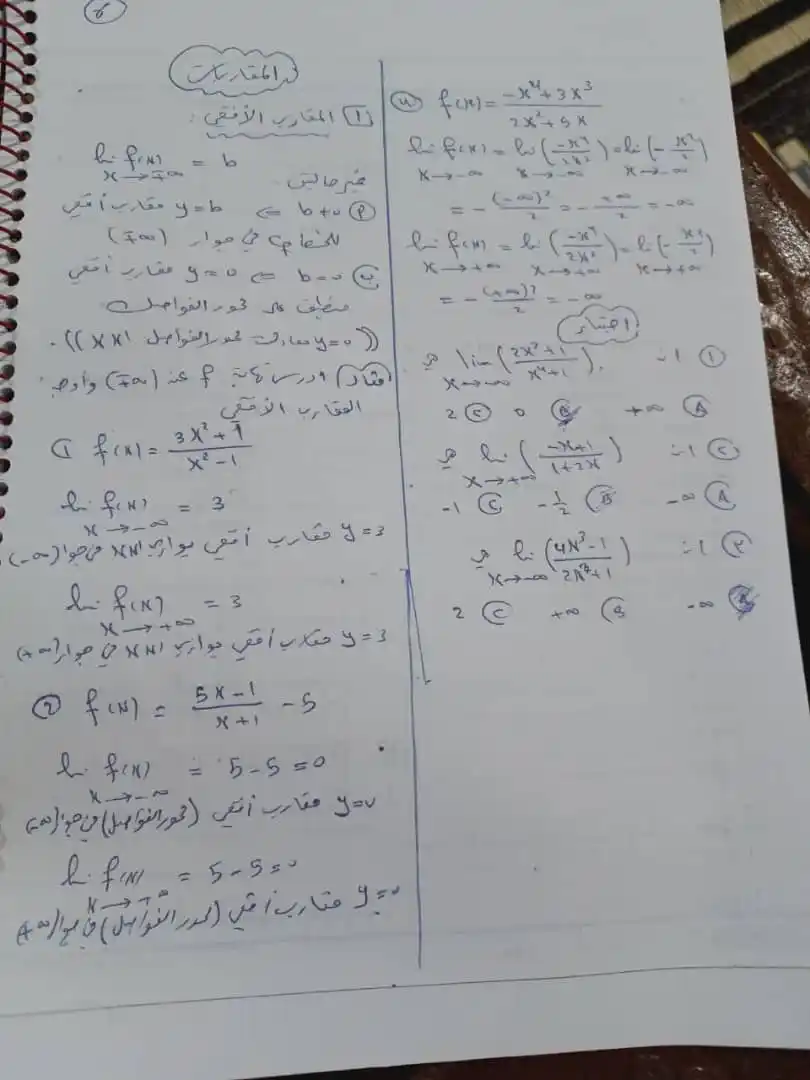 المقاربات
1 المقارب الأفقي:
lim f(x) = b
x → ∓∞
نميز حالتين
P b ≠ 0 ⇐ y = b مقارب أفقي
للخط في جوار (∓∞)
ب b = 0 ⇐ y = 0 مقارب أفقي
منطبق على محور الفواصل
((y = 0 معادلة محور الفواصل xx'))
مثال) ادرس نهاية f عند (∓∞) وأوجد
المقارب الأفقي
1 f(x) = 3x² + 1 / x² - 1
lim f(x) = 3
x → -∞
y = 3 مقارب أفقي يوازي xx' في جوار (-∞)
lim f(x) = 3
x → +∞
y = 3 مقارب أفقي يوازي xx' في جوار (+∞)
2 f(x) = 5x - 1 / x + 1 - 5
lim f(x) = 5 - 5 = 0
x → -∞
y = 0 مقارب أفقي (محور الفواصل) في جوار (-∞)
lim f(x) = 5 - 5 = 0
x → +∞
y = 0 مقارب أفقي (محور الفواصل) في جوار (+∞)
f(x) = -x⁴ + 3x³ / 2x² + 5x
lim f(x) = lim (-x⁴ / 2x²) = lim (- x² / 2)
x → -∞ x → -∞ x → -∞
= - (-∞)² / 2 = - +∞ / 2 = -∞
lim f(x) = lim (-x⁴ / 2x²) = lim (- x² / 2)
x → +∞ x → +∞ x → +∞
= - (+∞)² / 2 = -∞
اختبار
1 1- lim (2x² + 1 / x⁴ + 1) هي
x → -∞
A +∞ B 0 C 2
2 1- lim (-x + 1 / 1 + 2x) هي
x → +∞
A -∞ B -1/2 C -1
3 1- lim (4x³ - 1 / 2x² + 1) هي
x → -∞
A -∞ B +∞ C 2